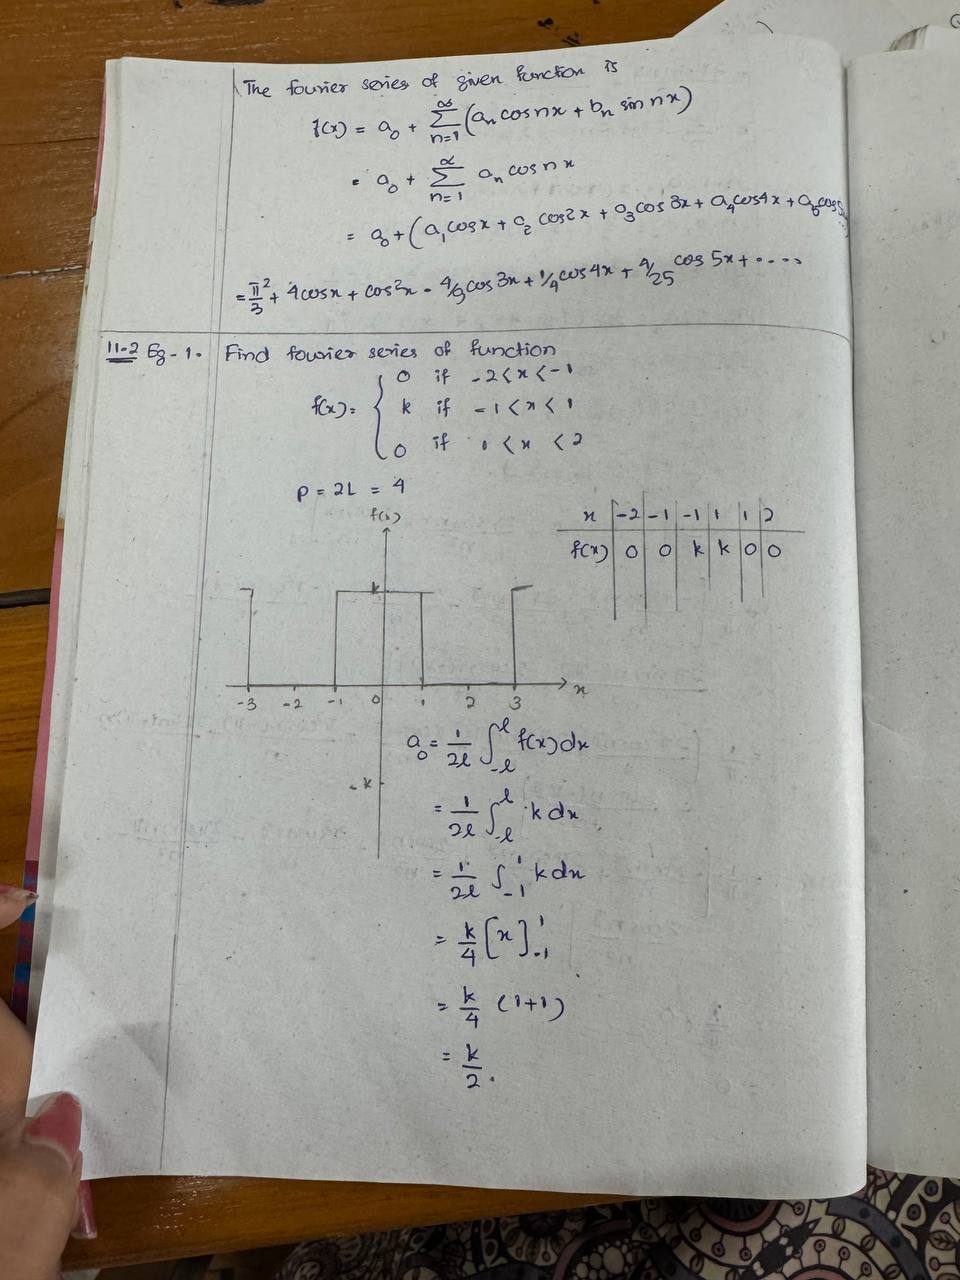 The fourier series of given function is
f(x) = a₀ + ∞Σn=1 (aₙ cosnx + bₙ sin nx)
= a₀ + ∝Σn=1 aₙ cosnx
= a₀ + (a₁cosx + a₂ cos2x + a₃cos 3x + a₄cos4x + a₅cos5
= π²/3 + 4cosx + cos2x - 4/9 cos 3x + 1/4 cos4x + 4/25 cos 5x + ....
11.2 Eg-1. Find fourier series of function
f(x) = { 0 if -2<x<-1
k if -1<x<1
0 if 1<x<2
P = 2L = 4
x -2 -1 -1 1 1 2
f(x) 0 0 k k 0 0
f(x)
k
-3 -2 -1 0 1 2 3 x
-k
a₀ = 1/2l ∫₋ₗˡ f(x)dx
= 1/2l ∫₋ₗˡ k dx
= 1/2l ∫₋₁¹ k dx
= k/4 [x]₋₁¹
= k/4 (1+1)
= k/2.